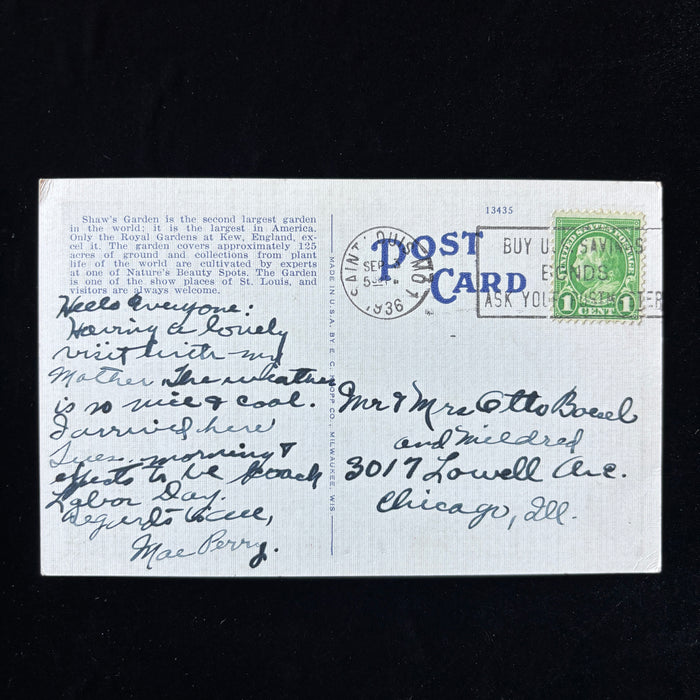 Shaw's Garden is the second largest garden
in the world; it is the largest in America.
Only the Royal Gardens at Kew, England, ex-
cel it. The garden covers approximately 125
acres of ground and collections from plant
life of the world are cultivated by experts
at one of Nature's Beauty Spots. The Garden
is one of the show places of St. Louis, and
visitors are always welcome.
Hello Everyone:
Having a lovely
visit with my
Mother. The weather
is so nice & cool.
I arrived here
Tues. morning &
expects to be back
Labor Day.
Regards to all,
Mae Perry.
MADE IN U.S.A. BY E. C. KROPP CO., MILWAUKEE, WIS.
13435
POST
CARD
SAINT LOUIS MO.
SEP
1936
BUY U.S. SAVINGS
BONDS
ASK YOUR POSTMASTER
UNITED STATES POSTAGE
1 CENT 1
Mr & Mrs Otto
and Mildred
3017 Lowell Ave.
Chicago, Ill.